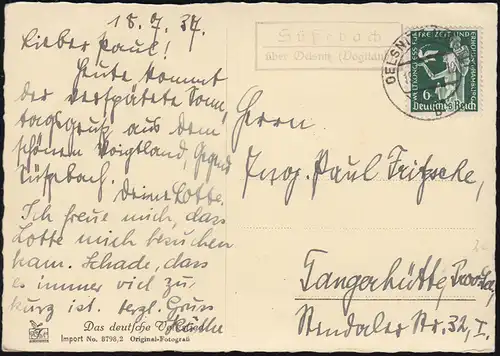 18.7.37.
Lieber Paul!
Heute kommt
der verspätete Sonn-
tagsgruß aus dem
schönen Voigtland Gegend
Süßebach.
Deine Lotte.
Ich freue mich, dass
Lotte mich besuchen
kam. Schade, dass
es immer viel zu
kurz ist. Herzl. Gruss
Käthe
Das deutsche
Import No. 8798,2 Original-Fotografi
Süßebach
über Oelsnitz (Vogtland)
OELSNITZ
WELTKONGRESS FÜR FREIZEIT UND ERHOLUNG HAMBURG
6
Deutsches Reich
Herrn
Paul Fritzsche,
Tangerhütte,
Stendaler-Str. 32, I.